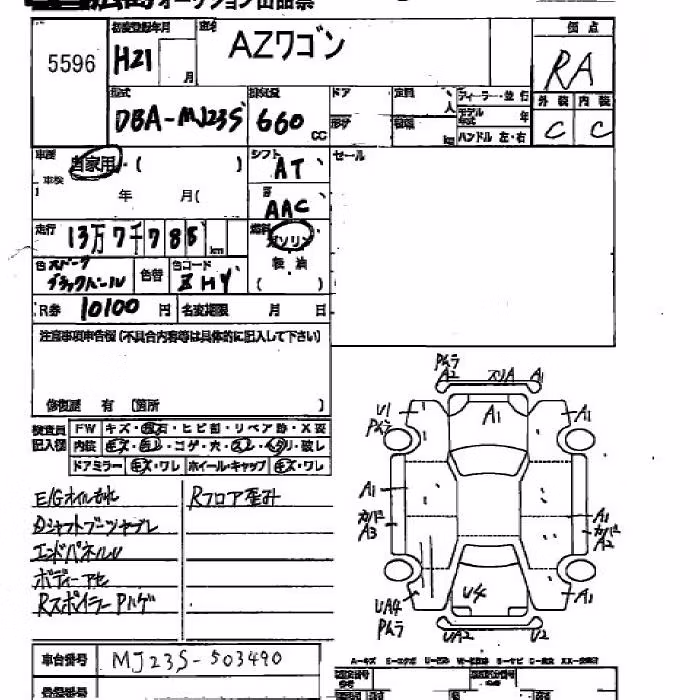 オークション出品票
5596
初度登録年月
H21
月
車名
AZワゴン
評価点
RA
型式
DBA-MJ23S
排気量
660
CC
ドア
形状
定員
人
積載
kg
ディーラー・並行
モデル年式
年
ハンドル 左・右
外装
内装
C
C
車歴
自家用・(
)
車検
年
月(
シフト
AT
AAC
セール
走行
13万7千785
km
燃料
ガソリン
軽油
(
)
色
スパーク
ブラックパール
色替
色コード
ZHY
R券
10100
円
名変期限
月
日
注意事項申告欄(不具合内容等は具体的に記入して下さい)
修復歴 有 [箇所
]
検査員
記入欄
FW
キズ・飛石・ヒビ割・リペア跡・X要
内装
ドアミラー
キズ・ワレ
ホイール・キャップ
キズ・ワレ
E/Gオイルもれ
Dシャフトブーツヤブレ
エンドパネルU
ボディーアセ
RスポイラーPハゲ
Rフロア歪み
Pムラ
A2
スリA
A1
A1
U1
Pムラ
A1
A1
カバド
A3
A1
カバド
A2
U4
UA4
Pムラ
A1
UA2
U2
車台番号
MJ23S-503490
登録番号